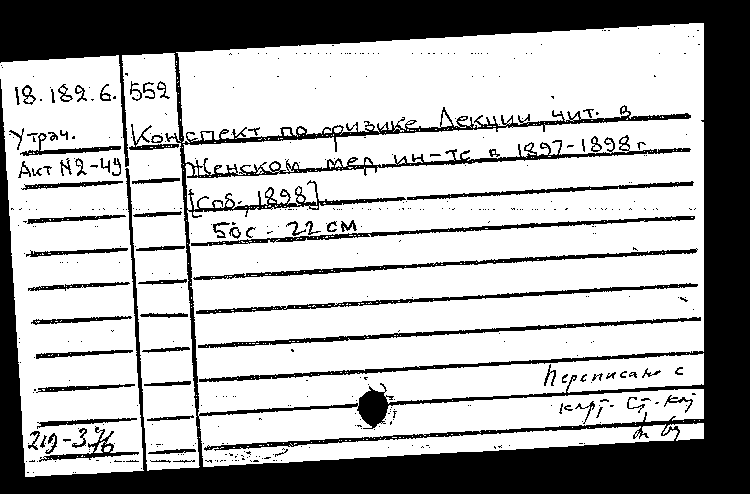 18.182.6. 552
Утрач. Конспект по физике. Лекции, чит. в
Акт N2-49 Женском мед. ин-те в 1897-1898 г.
[Спб., 1898].
56с - 22 см
Переписано с
219-376